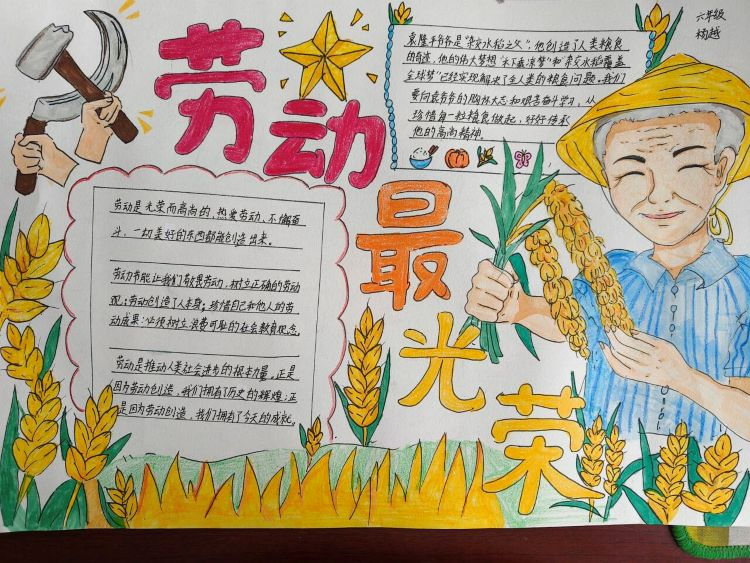 劳动最光荣
六年级
杨越
袁隆平爷爷是“杂交水稻之父”，他创造了人类粮食
的奇迹，他的伟大梦想“禾下乘凉梦”和“杂交水稻覆盖
全球梦”已经实现解决了全人类的粮食问题。我们
要向袁爷爷的胸怀大志和艰苦奋斗学习，从
珍惜每一粒粮食做起，好好传承
他的高尚精神。
劳动是光荣而高尚的，热爱劳动，不懈奋
斗，一切美好的东西都能创造出来。
劳动节能让我们欣果劳动，树立正确的劳动
观：劳动创造了人本身。珍惜自己和他人的劳
动成果：必须树立浪费可耻的社会教育观念。
劳动是推动人类社会进步的根本力量。正是
因为劳动创造，我们拥有了历史的辉煌；正
是因为劳动创造，我们拥有了今天的成就。